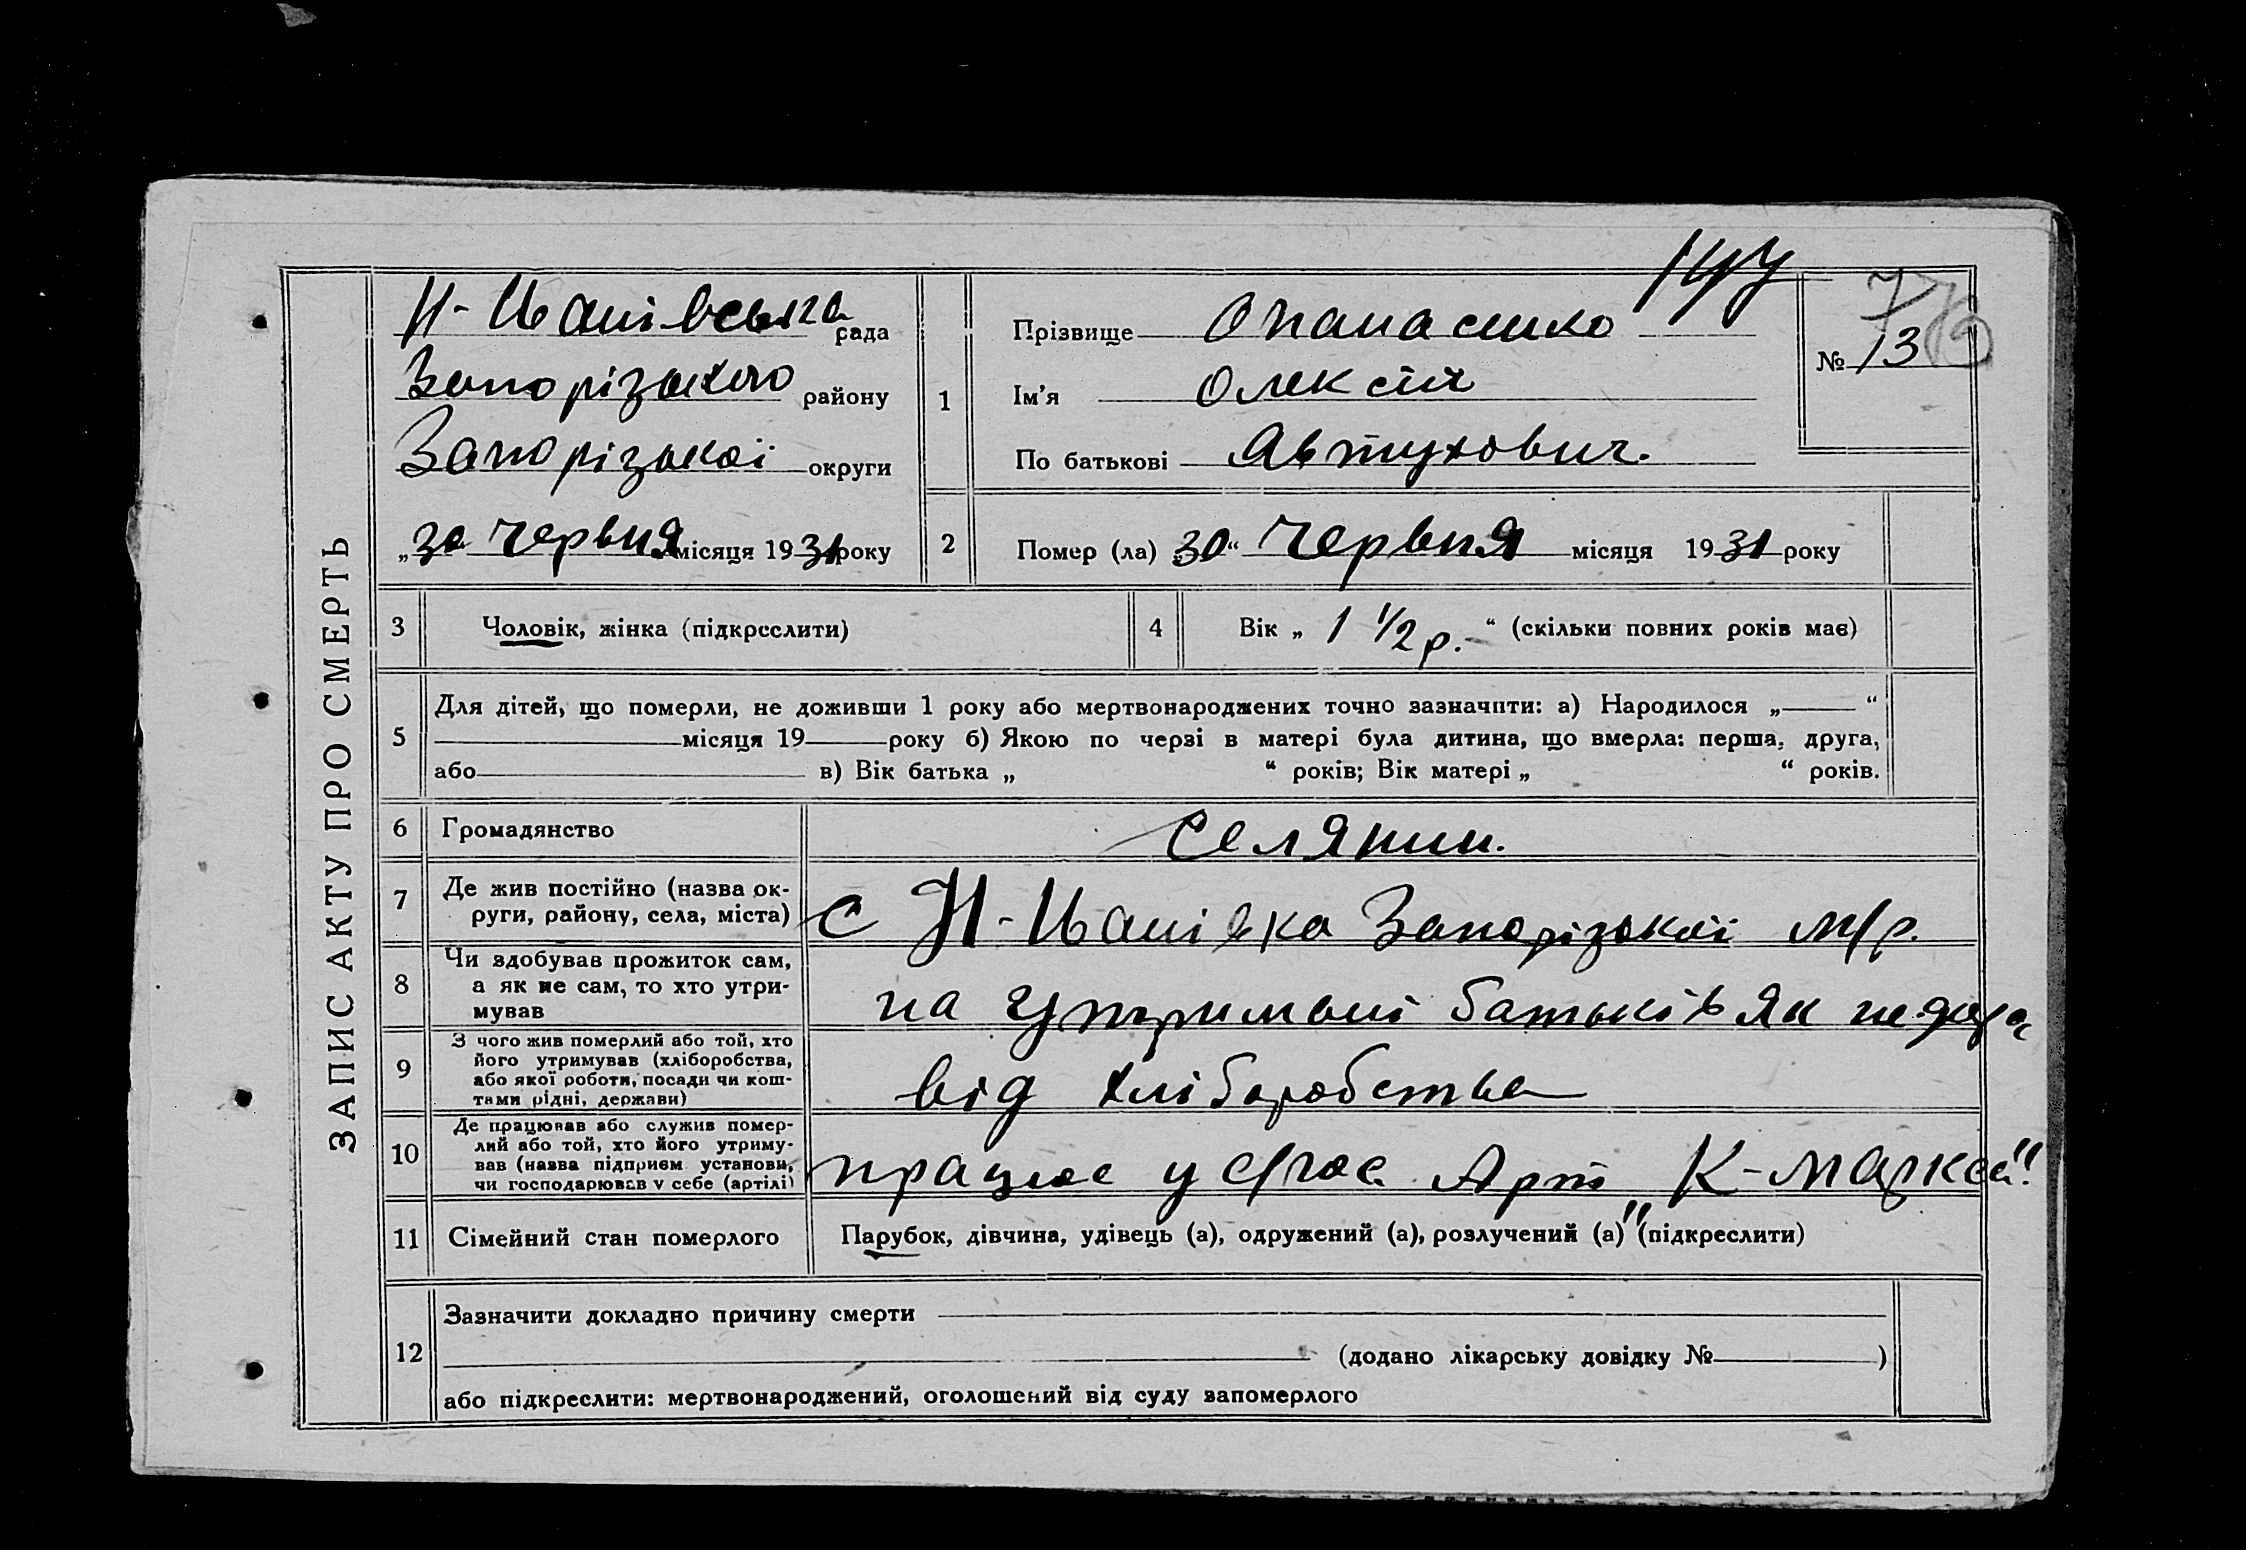 ЗАПИС АКТУ ПРО СМЕРТЬ
рада
Запорізького району
Запорізької округи
„30 червня місяця 1931 року
1
Прізвище Опанасенко
Ім'я Олексій
По батькові Автухович.
№ 13
2
Помер (ла) „30“ Червня місяця 1931 року
3 Чоловік, жінка (підкреслити)
4 Вік „ 1 1/2 р. “ (скільки повних років має)
5 Для дітей, що померли, не доживши 1 року або мертвонароджених точно зазначити: а) Народилося „ “
місяця 19 року б) Якою по черзі в матері була дитина, що вмерла: перша, друга,
або в) Вік батька „ “ років; Вік матері „ “ років.
6 Громадянство селянин.
7 Де жив постійно (назва ок-
руги, району, села, міста)
с Н-Іванівка Запорізької м/р.
8 Чи здобував прожиток сам,
а як не сам, то хто утри-
мував
на утриманні батьків як
9 З чого жив померлий або той, хто
його утримував (хліборобства,
або якої роботи, посади чи кош-
тами рідні, держави)
від хліборобства
10 Де працював або служив помер-
лий або той, хто його утриму-
вав (назва підприєм. установи,
чи господарював у себе (артілі)
працює у Арт „К-Маркса"
11 Сімейний стан померлого Парубок, дівчина, удівець (а), одружений (а), розлучений (а) (підкреслити)
12 Зазначити докладно причину смерти
(додано лікарську довідку № )
або підкреслити: мертвонароджений, оголошений від суду запомерлого